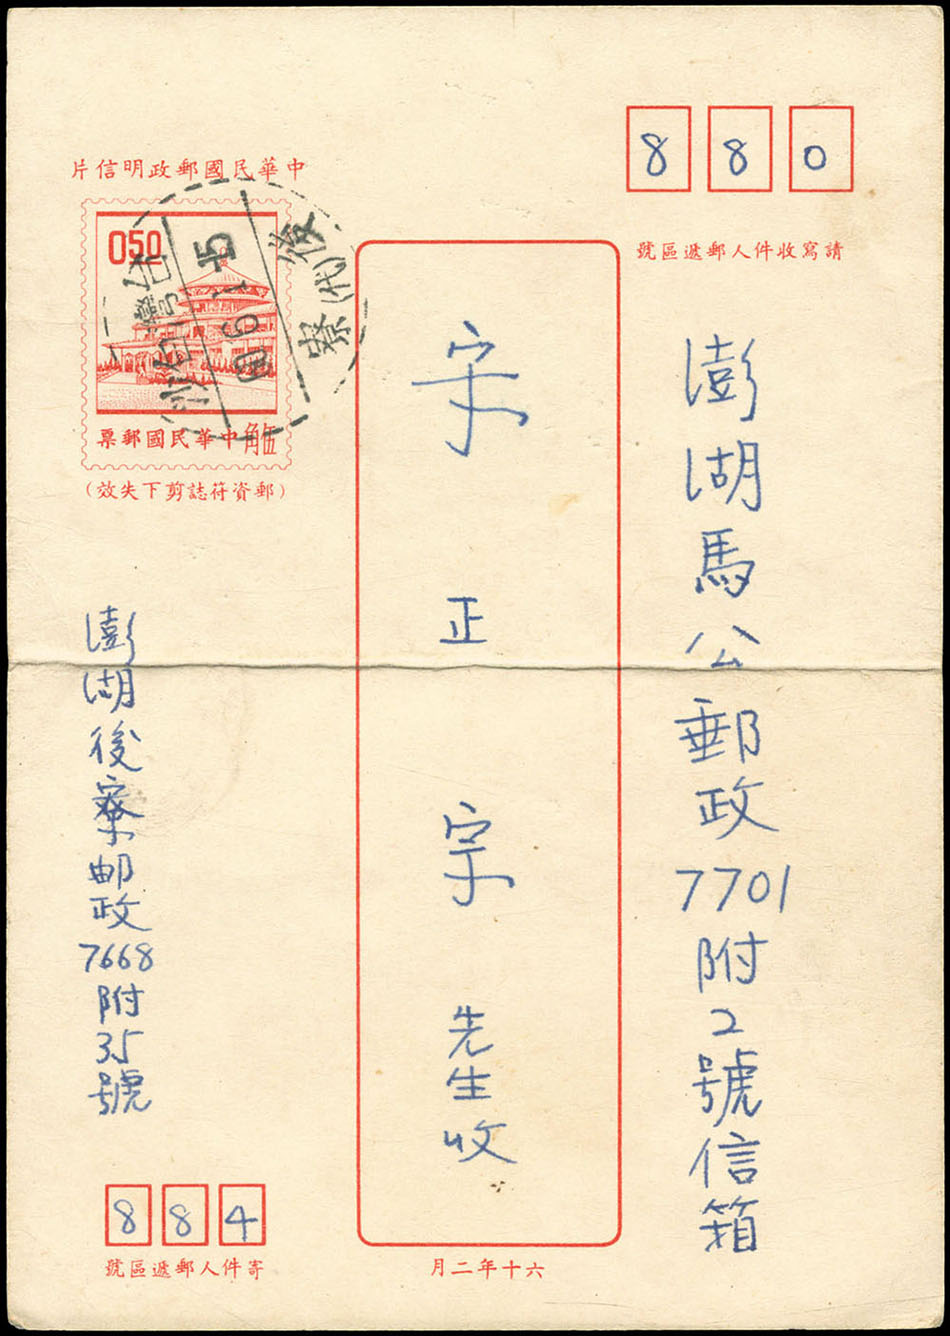 880
請寫收件人郵遞區號
中華民國郵政明信片
0.50
伍角中華民國郵票
(郵資符誌剪下失效)
台灣
後寮(代)
澎湖馬公郵政7701附2號信箱
宋正宇先生收
澎湖後寮邮政7668附35號
884
寄件人郵遞區號
六十年二月